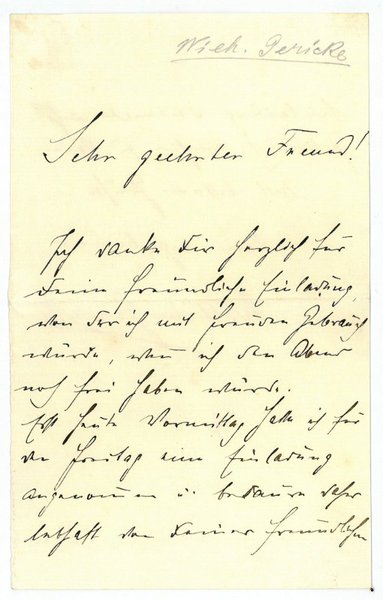 Wilh. Gericke
Sehr geehrter Freund!
Ich danke Dir herzlich für
Deine freundliche Einladung,
von der ich mit Freuden Gebrauch
würde, wenn ich den Abend
noch frei haben würde.
Erst heute Vormittag habe ich für
den Freitag eine Einladung
angenommen u. bedaure daher
lebhaft von Deiner freundlichen